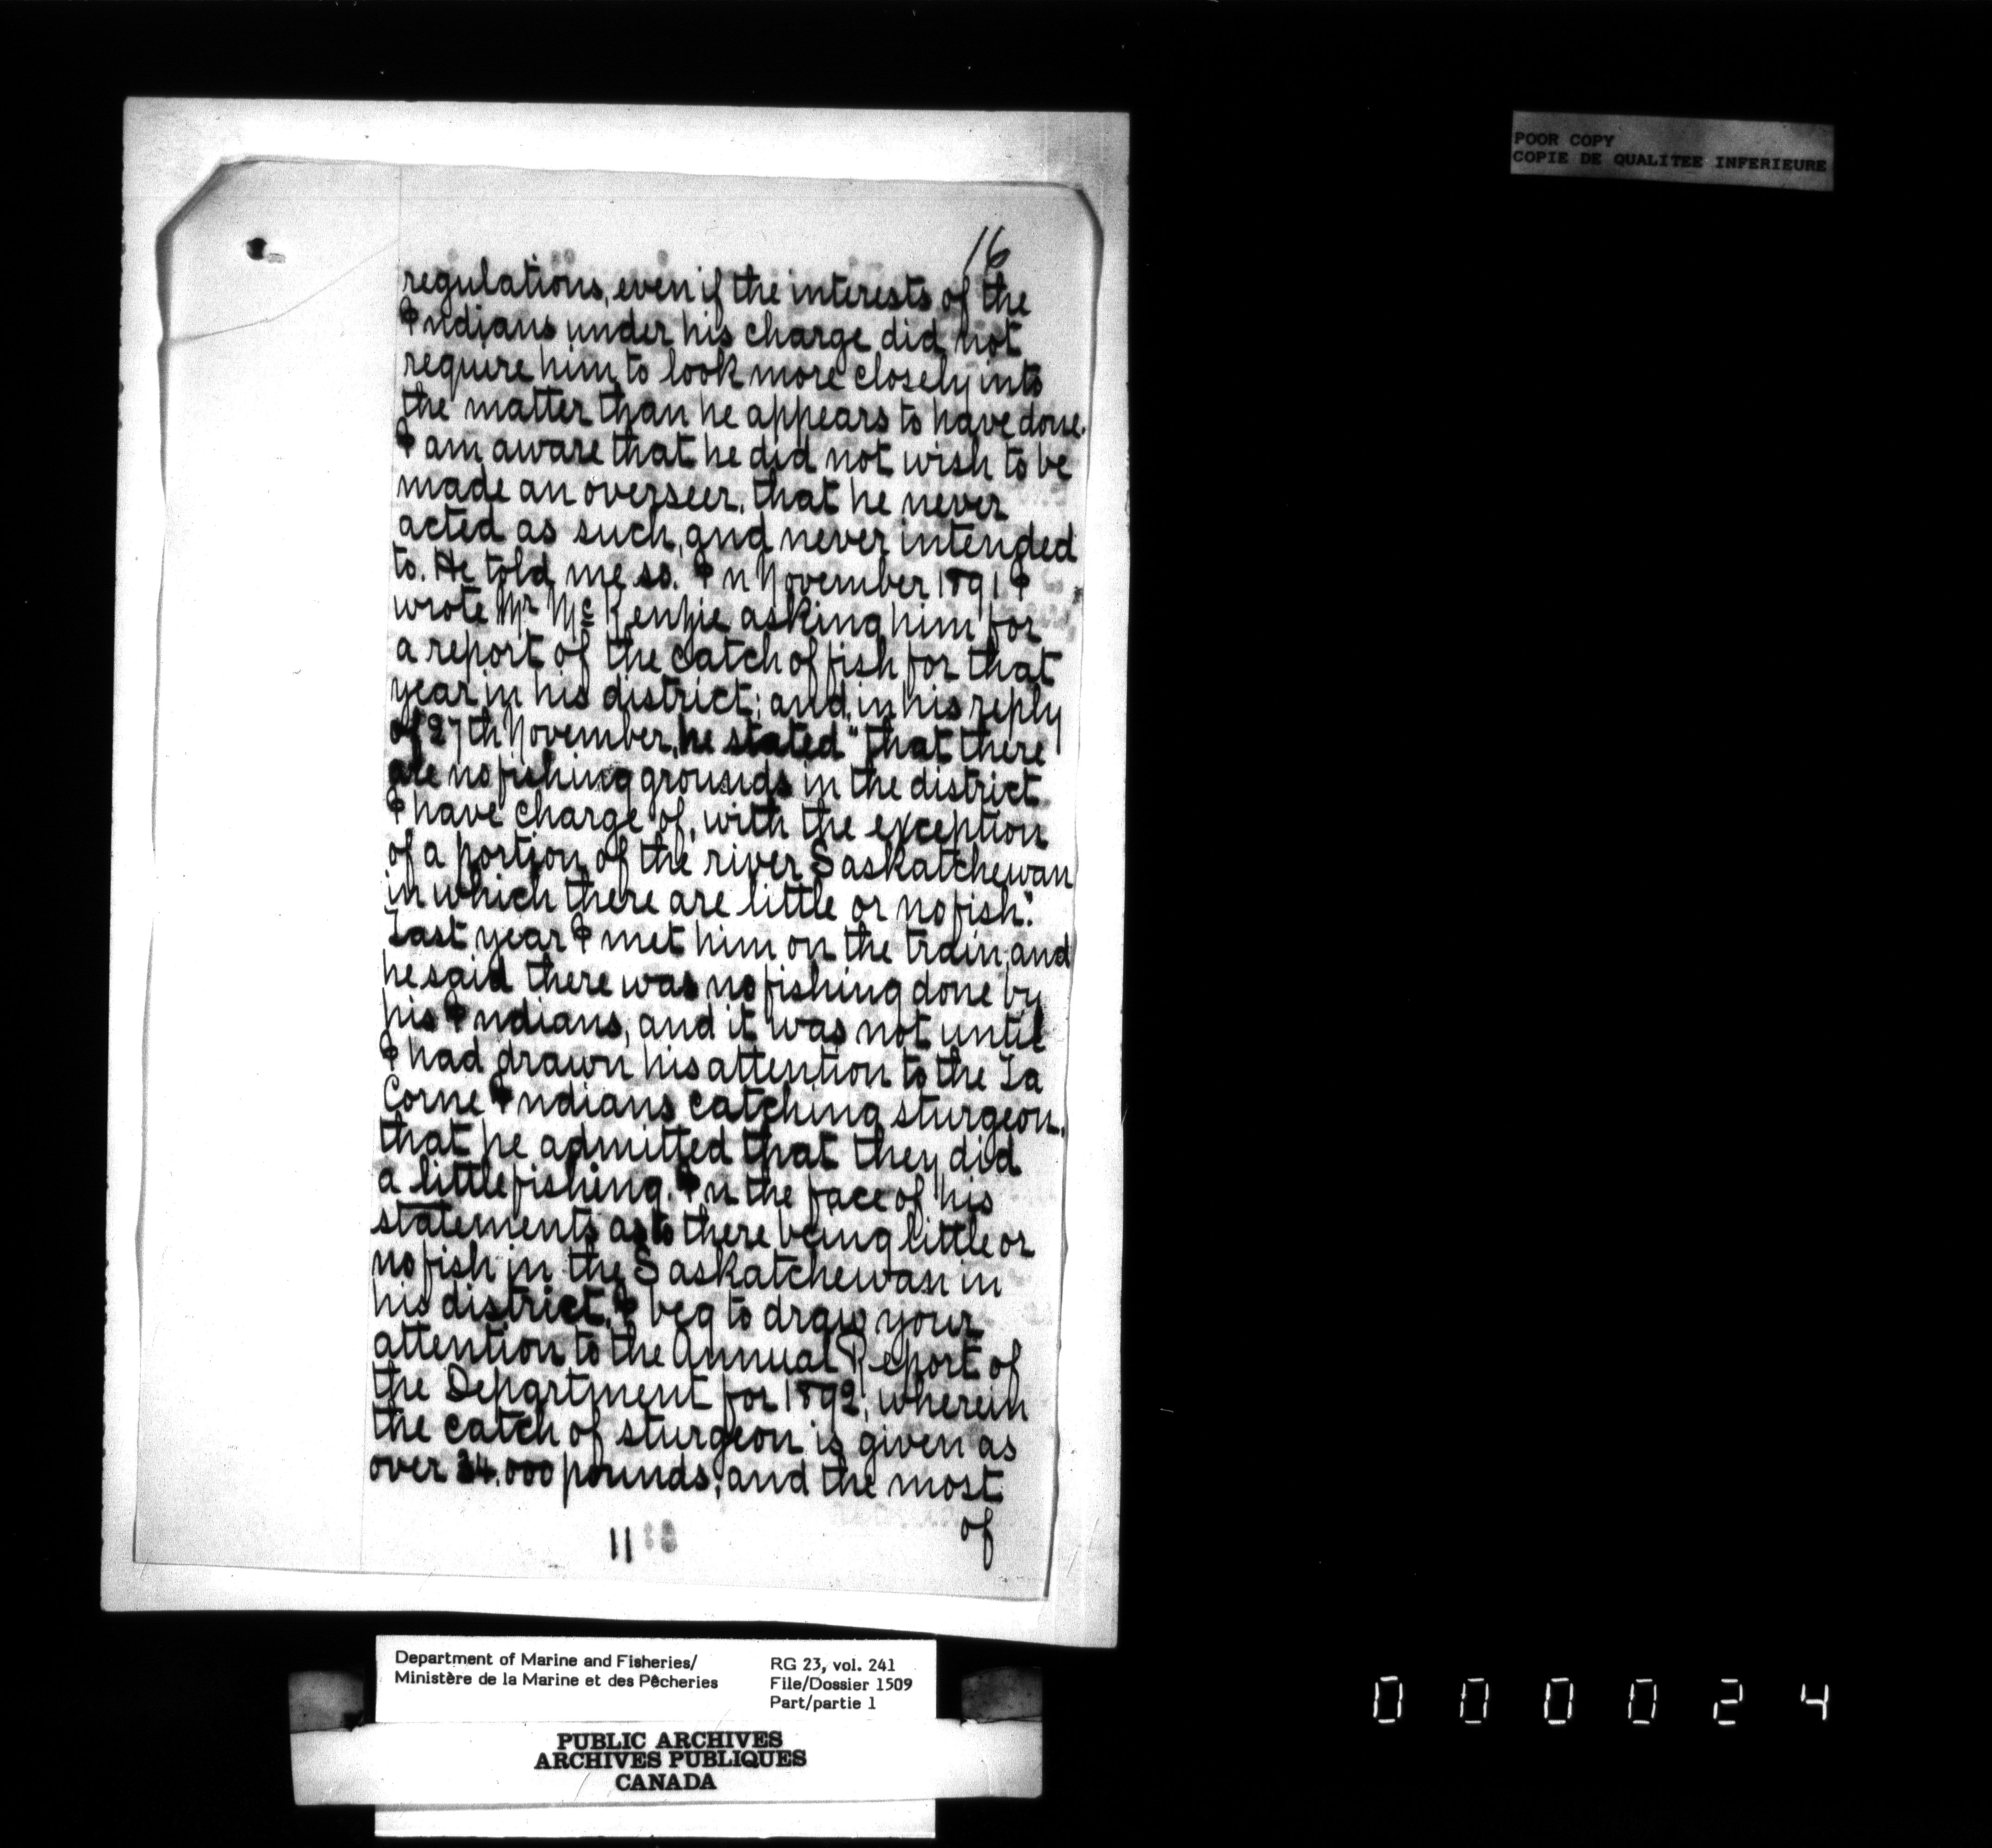 POOR COPY
COPIE DE QUALITEE INFERIEURE
16
regulations, even if the interests of the
Indians under his charge did not
require him to look more closely into
the matter than he appears to have done.
I am aware that he did not wish to be
made an overseer, that he never
acted as such, and never intended
to. He told me so. In November 1891 I
wrote Mr McKenzie asking him for
a report of the catch of fish for that
year in his district; and, in his reply
of 27th November, he stated "that there
are no fishing grounds in the district
I have charge of, with the exception
of a portion of the river Saskatchewan
in which there are little or no fish".
Last year I met him on the train, and
he said there was no fishing done by
his Indians, and it was not until
I had drawn his attention to the La
Corne Indians catching sturgeon,
that he admitted that they did
a little fishing. In the face of his
statements as to there being little or
no fish in the Saskatchewan in
his district, I beg to draw your
attention to the Annual Report of
the Department for 1892, wherein
the catch of sturgeon is given as
over 34.000 pounds; and the most
of
11
Department of Marine and Fisheries/
Ministère de la Marine et des Pêcheries
RG 23, vol. 241
File/Dossier 1509
Part/partie 1
PUBLIC ARCHIVES
ARCHIVES PUBLIQUES
CANADA
000024